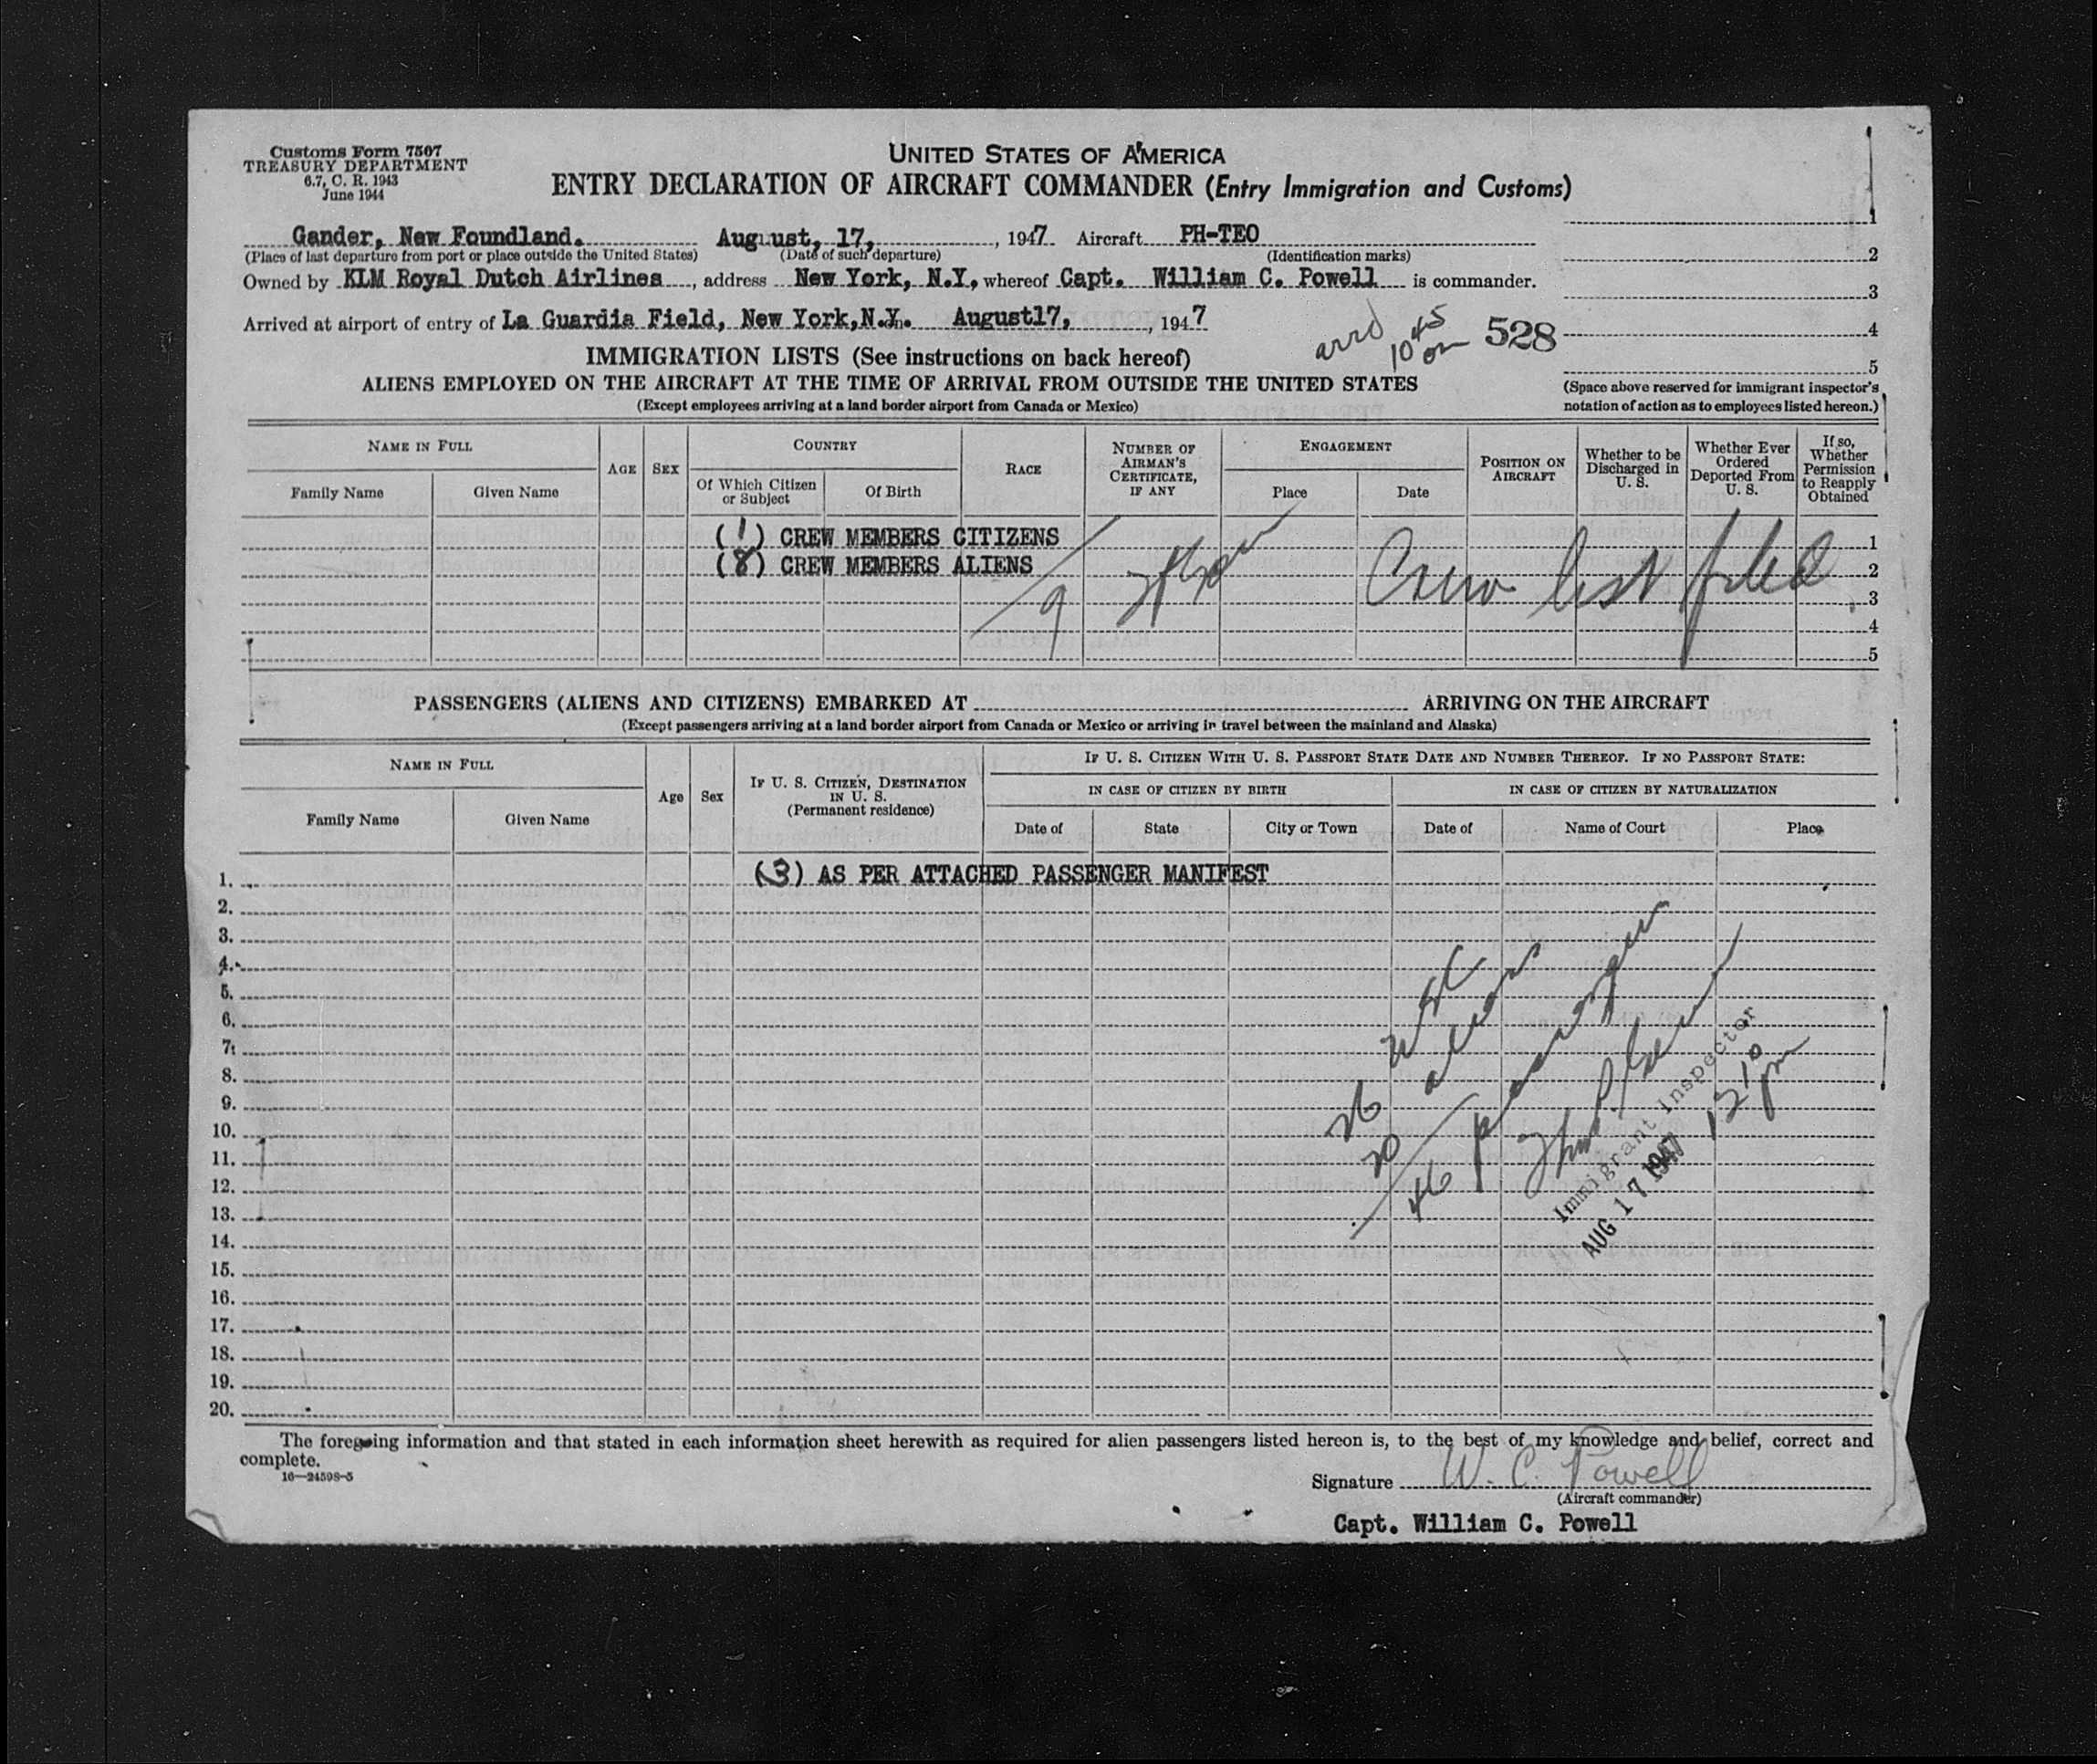 Customs Form 7507
TREASURY DEPARTMENT
6.7, C. R. 1943
June 1944
UNITED STATES OF AMERICA
ENTRY DECLARATION OF AIRCRAFT COMMANDER (Entry Immigration and Customs)
Gander, New Foundland. August, 17, , 1947 Aircraft PH-TEO
(Place of last departure from port or place outside the United States) (Date of such departure) (Identification marks)
Owned by KLM Royal Dutch Airlines , address New York, N.Y. , whereof Capt. William C. Powell is commander.
Arrived at airport of entry of La Guardia Field, New York,N.Y. on August17, , 1947
arrd 10 45 am 528
1
2
3
4
5
(Space above reserved for immigrant inspector's
notation of action as to employees listed hereon.)
IMMIGRATION LISTS (See instructions on back hereof)
ALIENS EMPLOYED ON THE AIRCRAFT AT THE TIME OF ARRIVAL FROM OUTSIDE THE UNITED STATES
(Except employees arriving at a land border airport from Canada or Mexico)
NAME IN FULL
Family Name
Given Name
AGE
SEX
COUNTRY
Of Which Citizen or Subject
Of Birth
RACE
NUMBER OF AIRMAN'S CERTIFICATE, IF ANY
ENGAGEMENT
Place
Date
POSITION ON AIRCRAFT
Whether to be Discharged in U. S.
Whether Ever Ordered Deported From U. S.
If so, Whether Permission to Reapply Obtained
(1) CREW MEMBERS CITIZENS 1
(8) CREW MEMBERS ALIENS 2
9 Crew list filed 3
4
5
PASSENGERS (ALIENS AND CITIZENS) EMBARKED AT ARRIVING ON THE AIRCRAFT
(Except passengers arriving at a land border airport from Canada or Mexico or arriving in travel between the mainland and Alaska)
NAME IN FULL
Family Name
Given Name
Age
Sex
IF U. S. CITIZEN, DESTINATION IN U. S.
(Permanent residence)
IF U. S. CITIZEN WITH U. S. PASSPORT STATE DATE AND NUMBER THEREOF. IF NO PASSPORT STATE:
IN CASE OF CITIZEN BY BIRTH
Date of
State
City or Town
IN CASE OF CITIZEN BY NATURALIZATION
Date of
Name of Court
Place
1. (3) AS PER ATTACHED PASSENGER MANIFEST
2.
3.
4.
5.
6.
7.
8.
9.
10.
11.
12.
13.
14.
15.
16.
17.
18.
19.
20.
26 USC
20 aliens
46 passengers
Immigrant Inspector
AUG 17 1947
12 10 pm
The foregoing information and that stated in each information sheet herewith as required for alien passengers listed hereon is, to the best of my knowledge and belief, correct and
complete.
16—24598-5
Signature W. C. Powell
(Aircraft commander)
Capt. William C. Powell